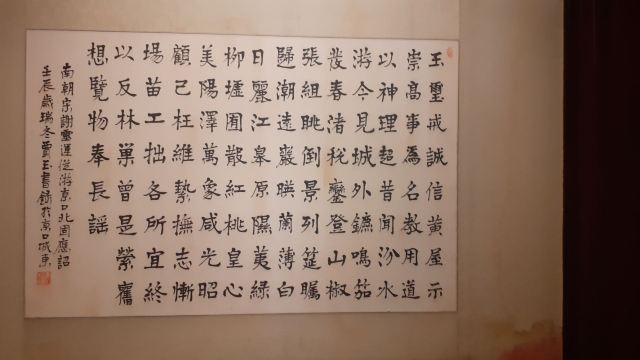 玉璽戒誠信黄屋示
崇高事為名教用道
以神理超昔聞汾水
游今見城外鑣鳴笳
發春渚稅鑾登山椒
張組眺倒景列筵矚
歸潮遠巖暎蘭薄白
日麗江皋原隰荑緑
柳墟囿散紅桃皇心
美陽澤萬象咸光昭
顧己枉維縶撫志慚
場苗工拙各所宜終
以反林巢曾是縈舊
想覽物奉長謠
南朝宋謝靈運從游京口北固應詔
壬辰歲瑞冬賈玉書錄於京口城東